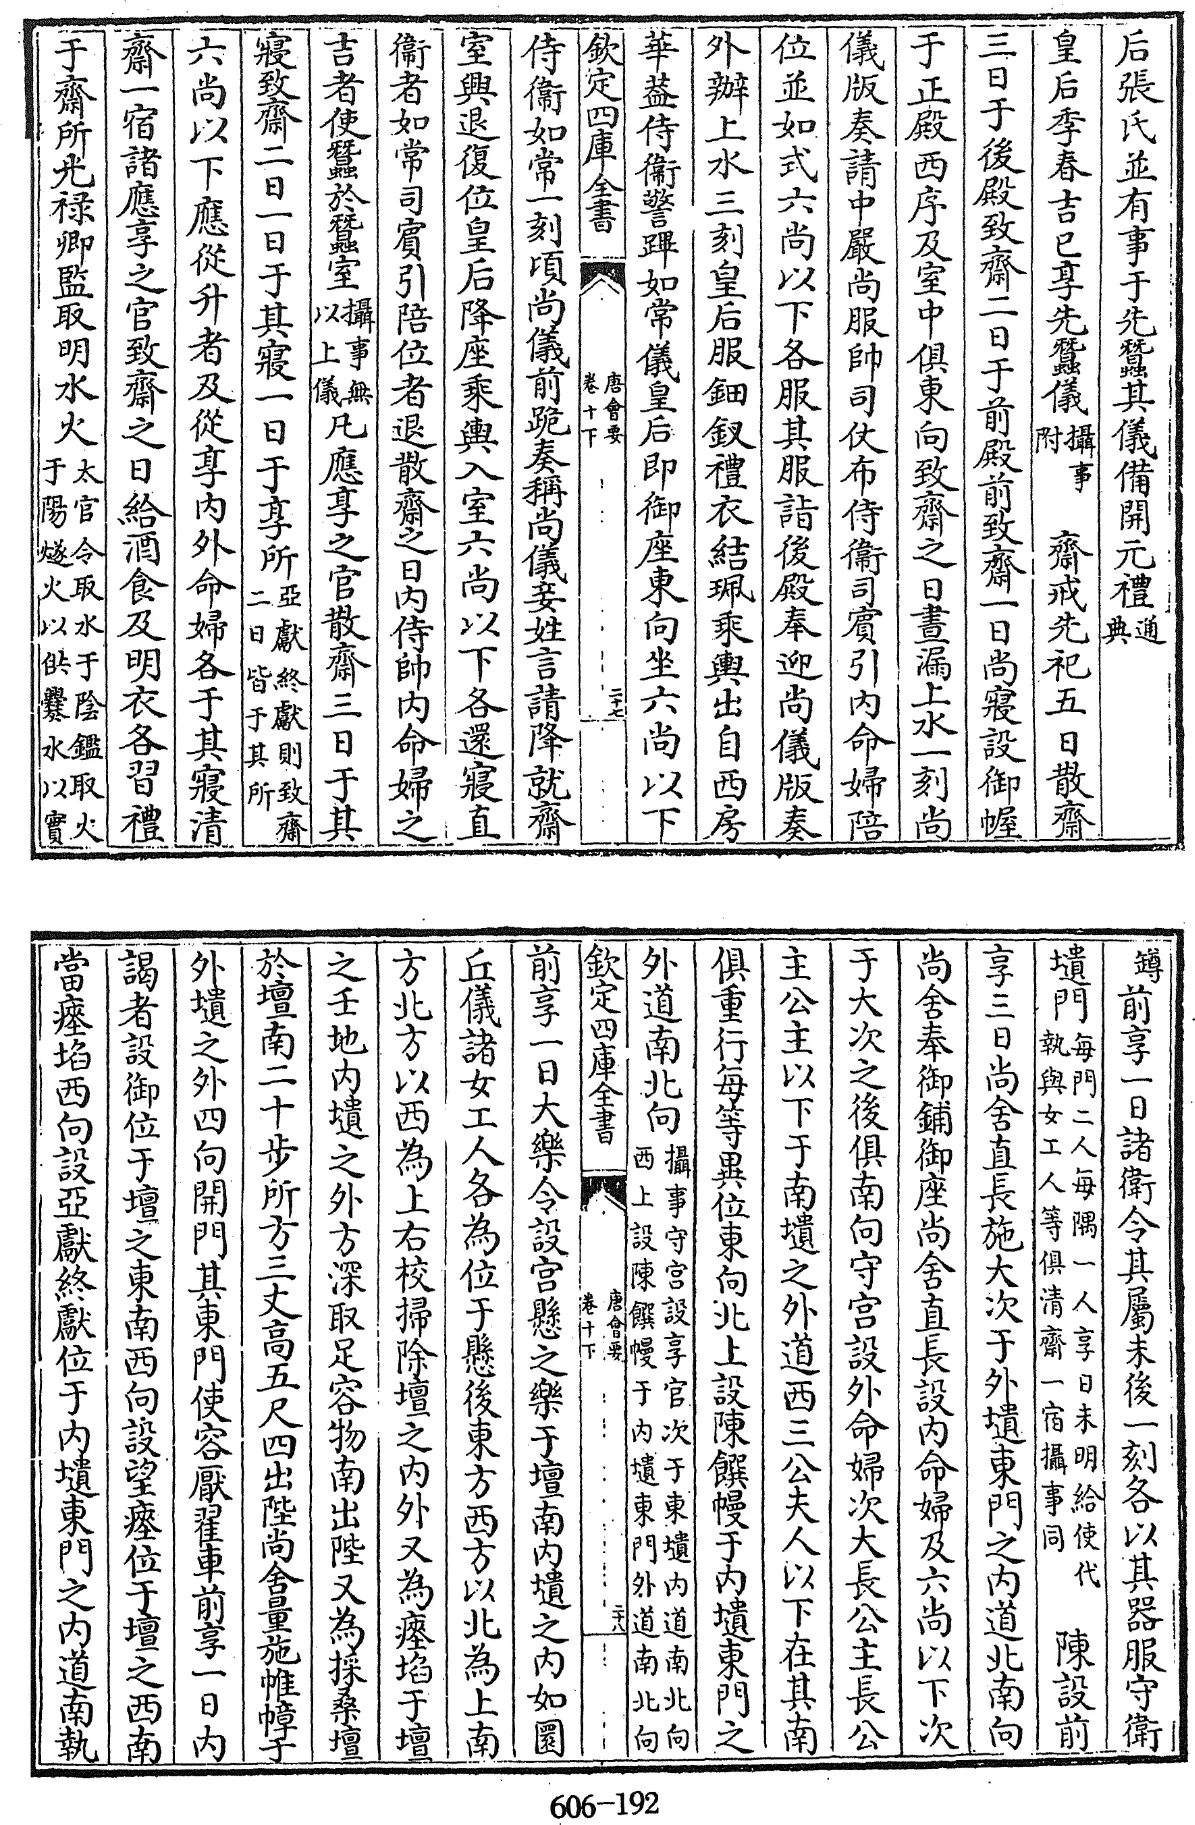 后張氏並有事于先蠶其儀備開元禮通典
皇后季春吉已享先蠶儀攝事附　齋戒先祀五日散齋
三日于後殿致齋二日于前殿前致齋一日尚寢設御幄
于正殿西序及室中俱東向致齋之日晝漏上水一刻尚
儀版奏請中嚴尚服帥司仗布侍衞司賓引内命婦陪
位並如式六尚以下各服其服詣後殿奉迎尚儀版奏
外辦上水三刻皇后服鈿釵禮衣結珮乘輿出自西房
華葢侍衞警蹕如常儀皇后即御座東向坐六尚以下
欽定四庫全書　唐會要卷十下　二十七
侍衞如常一刻頃尚儀前跪奏稱尚儀妾姓言請降就齋
室興退復位皇后降座乘輿入室六尚以下各還寢直
衞者如常司賓引陪位者退散齋之日内侍帥内命婦之
吉者使蠶於蠶室攝事無以上儀凡應享之官散齋三日于其
寢致齋二日一日于其寢一日于享所亞獻終獻則致齋二日皆于其所
六尚以下應從升者及從享内外命婦各于其寢清
齋一宿諸應享之官致齋之日給酒食及明衣各習禮
于齋所光禄卿監取明水火太官令取水于陰鑑取火于陽燧火以供爨水以實
罇前享一日諸衛令其屬未後一刻各以其器服守衛
壝門每門二人每隅一人享日未明給使代執與女工人等俱清齋一宿攝事同　陳設前
享三日尚舍直長施大次于外壝東門之内道北南向
尚舍奉御鋪御座尚舍直長設内命婦及六尚以下次
于大次之後俱南向守宫設外命婦次大長公主長公
主公主以下于南壝之外道西三公夫人以下在其南
俱重行每等異位東向北上設陳饌幔于内壝東門之
外道南北向攝事守宫設享官次于東壝内道南北向西上設陳饌幔于内壝東門外道南北向
欽定四庫全書　唐會要卷十下　二十八
前享一日大樂令設宫懸之樂于壇南内壝之内如圜
丘儀諸女工人各為位于懸後東方西方以北為上南
方北方以西為上右校掃除壇之内外又為瘞埳于壇
之壬地内壝之外方深取足容物南出陛又為採桑壇
於壇南二十步所方三丈高五尺四出陛尚舍量施帷幛于
外壝之外四向開門其東門使容厭翟車前享一日内
謁者設御位于壇之東南西向設望瘞位于壇之西南
當瘞埳西向設亞獻終獻位于内壝東門之内道南執
606-192